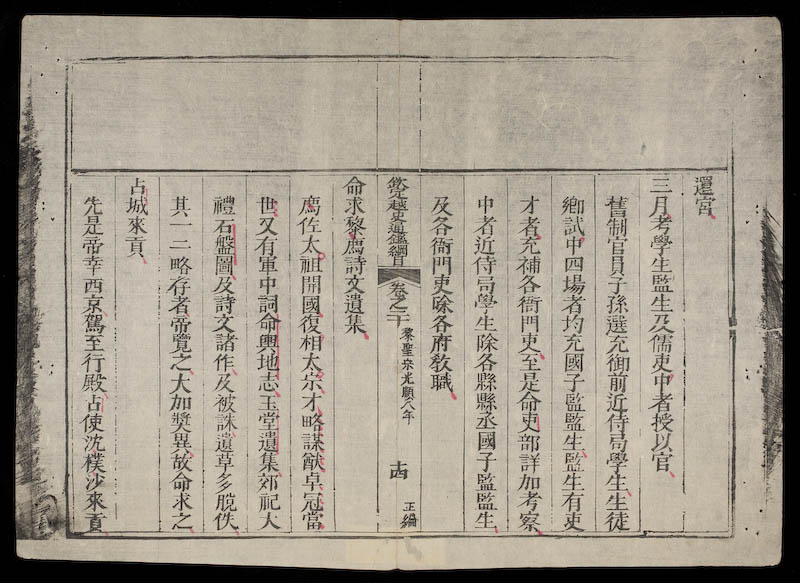 還宮
三月考學生監生及儒吏中者授以官
舊制官員子孫選充御前近侍局學生生徒
鄉試中四場者均充國子監監生監生有吏
才者充補各衙門吏至是命吏部詳加考察
中者近侍局學生除各縣縣丞國子監監生
及各衙門吏除各府教職
欽定越史通鑑綱目 卷之二十 黎聖宗光順八年 十四 正編
命求黎廌詩文遺集
廌佐太祖開國復相太宗才略謀猷卓冠當
世又有軍中詞命輿地志玉堂遺集郊祀大
禮石盤圖及詩文諸作及被誅遺草多脫佚
其一二略存者帝覽之大加獎異故命求之
占城來貢
先是帝幸西京駕至行殿占使沈樸沙來貢